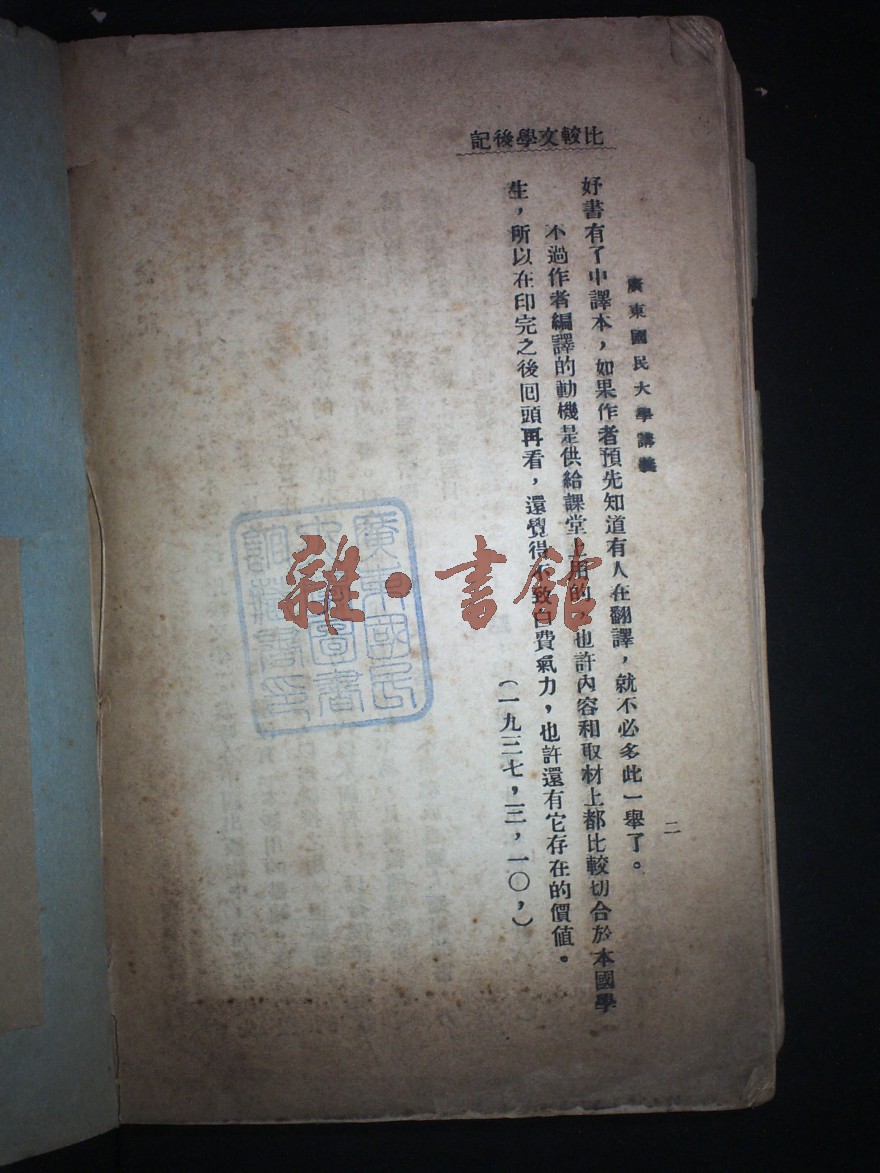 比較文學後記
廣東國民大學講義
二
好書有了中譯本，如果作者預先知道有人在翻譯，就不必多此一舉了。
不過作者編譯的動機是供給課堂上用的，也許內容和取材上都比較切合於本國學
生，所以在印完之後回頭再看，還覺得不致白費氣力，也許還有它存在的價值。
（一九三七，三，一〇，）
廣東國民
大學圖書
館藏書印
雜·書館